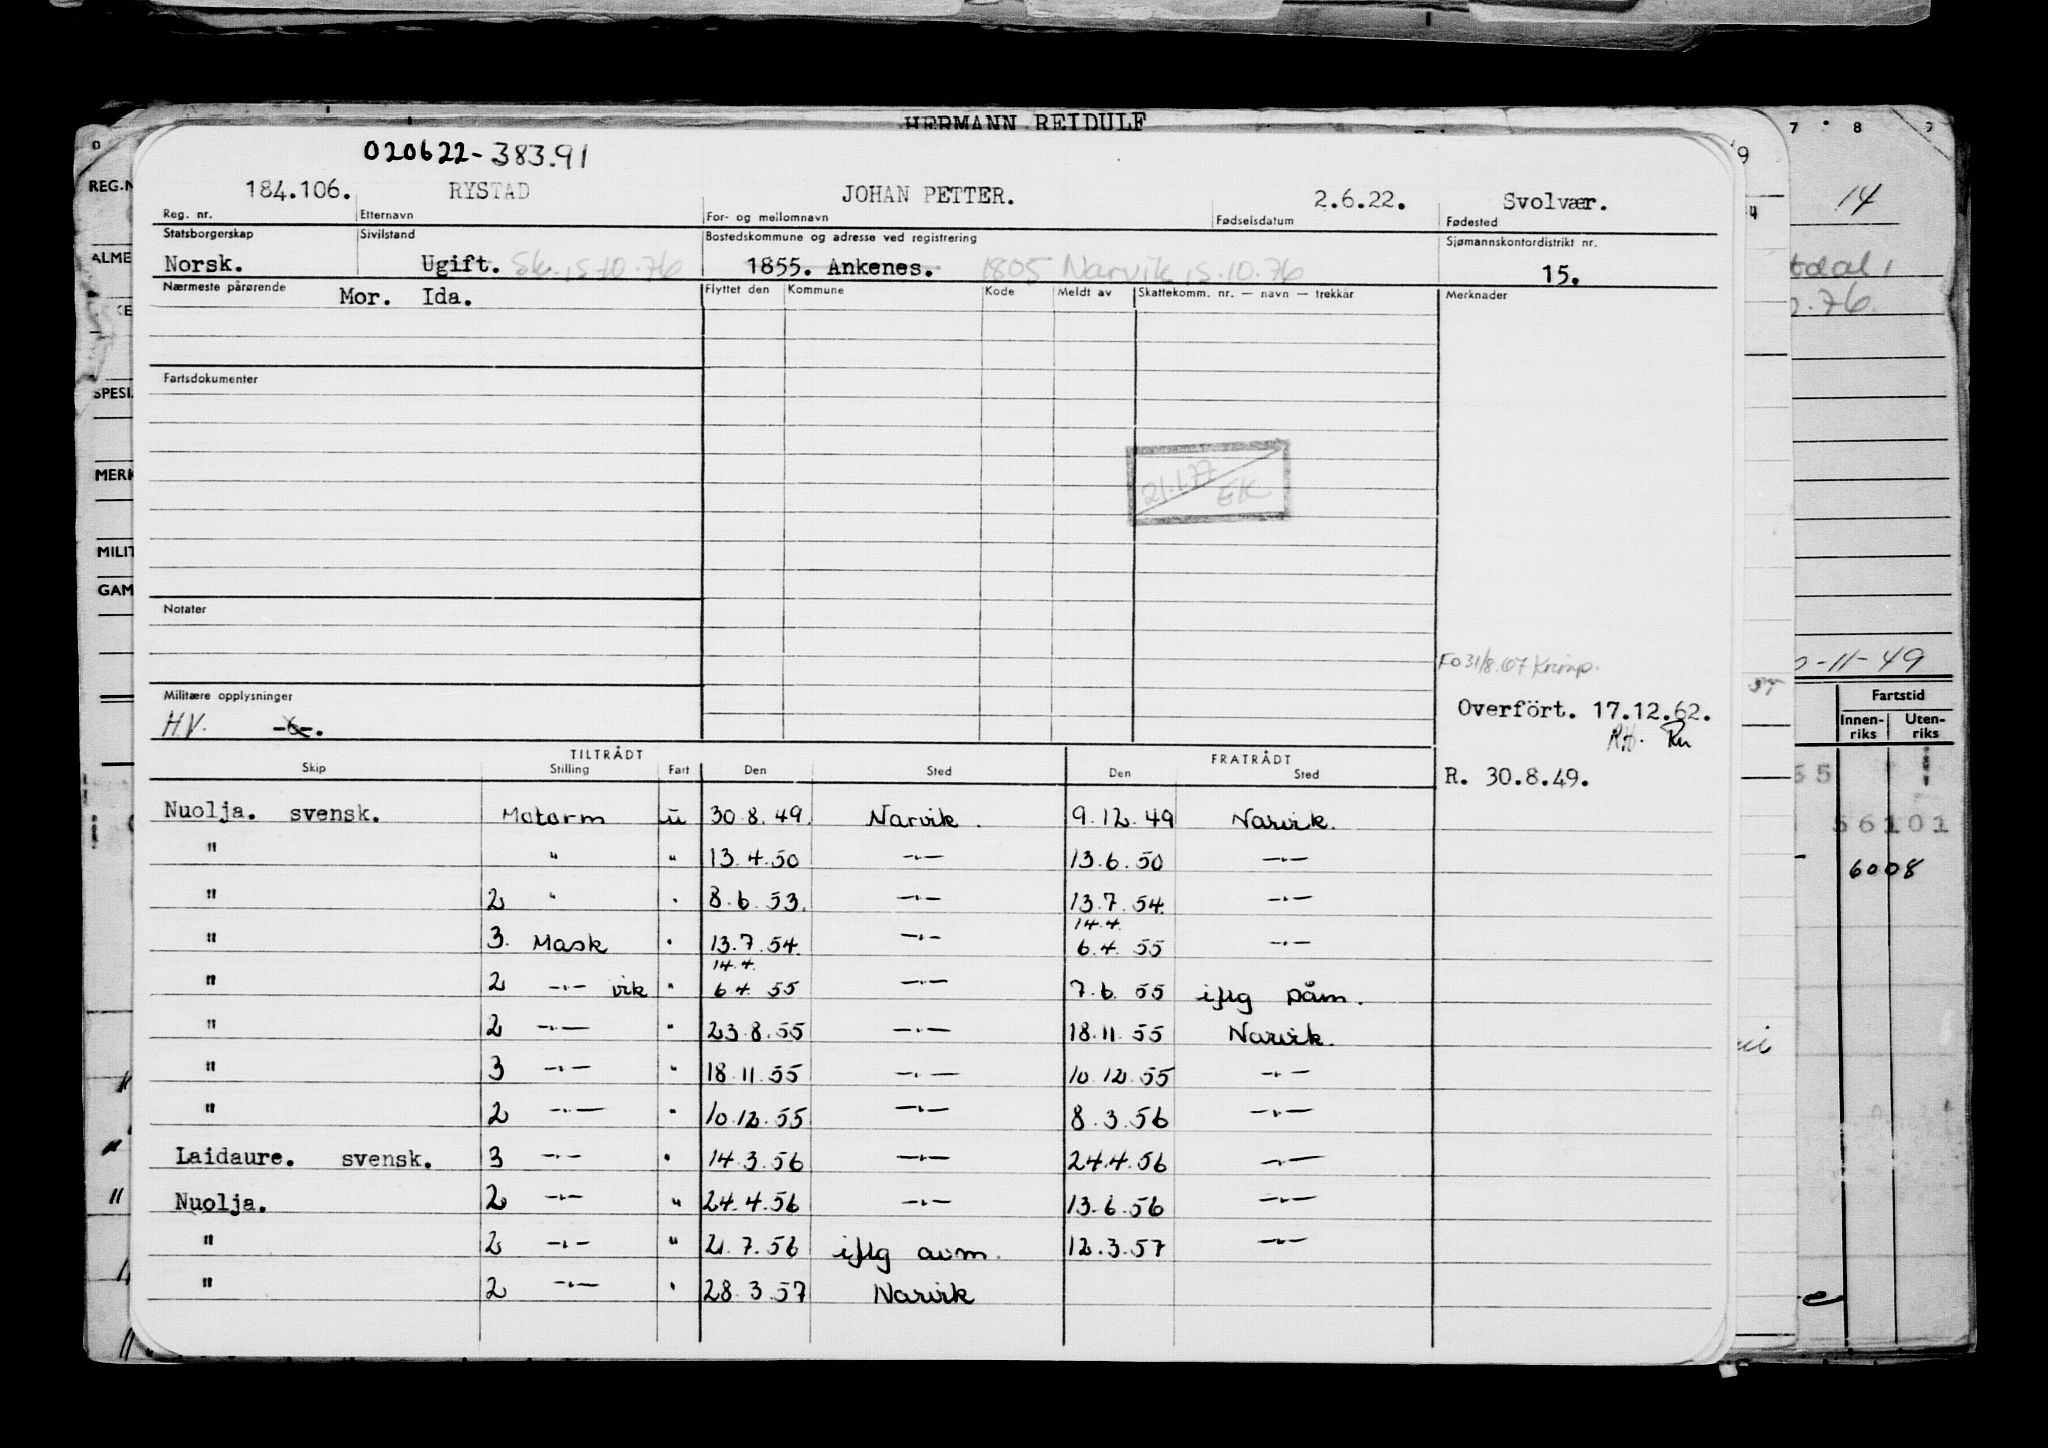 HERMANN REIDULF
020622-383.91
184.106. RYSTAD JOHAN PETTER. 2.6.22. Svolvær.
Reg. nr. Etternavn For- og mellomnavn Fødselsdatum Fødested
Statsborgerskap Sivilstand Bostedskommune og adresse ved registrering Sjømannskontordistrikt nr.
Norsk. Ugift. Sk. 15.10.76 1855. Ankenes. 1805 Narvik 15.10.76 15.
Nærmeste pårørende Mor. Ida. Flyttet den Kommune Kode Meldt av Skattekomm. nr. — navn — trekkår Merknader
Fartsdokumenter
21.1.77 EK
Notater
Fo 31/8.67
Militære opplysninger
HV.
Overført. 17.12.62.
R. 30.8.49.
TILTRÅDT FRATRÅDT
Skip Stilling Fart Den Sted Den Sted
Nuolja. svensk. Motorm u 30.8.49. Narvik. 9.12.49 Narvik.
" " " 13.4.50 —"— 13.6.50 —"—
" 2 " " 8.6.53. —"— 13.7.54. —"—
14.4.
" 3. Mask " 13.7.54. —"— 6.4.55 —"—
14.4.
" 2 —"— vik " 6.4.55 —"— 7.6.55 iflg påm.
" 2 —"— " 23.8.55 —"— 18.11.55 Narvik.
" 3 —"— " 18.11.55 —"— 10.12.55 —"—
" 2 —"— " 10.12.55 —"— 8.3.56 —"—
Laidaure. svensk. 3 —"— " 14.3.56 —"— 24.4.56 —"—
Nuolja. 2 —"— " 24.4.56 —"— 13.6.56 —"—
" 2 —"— " 21.7.56 iflg avm. 12.3.57 —"—
" 2 —"— " 28.3.57 Narvik
REG.N
ALME
SPESI
MERK
MILIT
GAM
7 8 9
14
.76
-11-49
Fartstid
Innen-riks Uten-riks
56101
6008